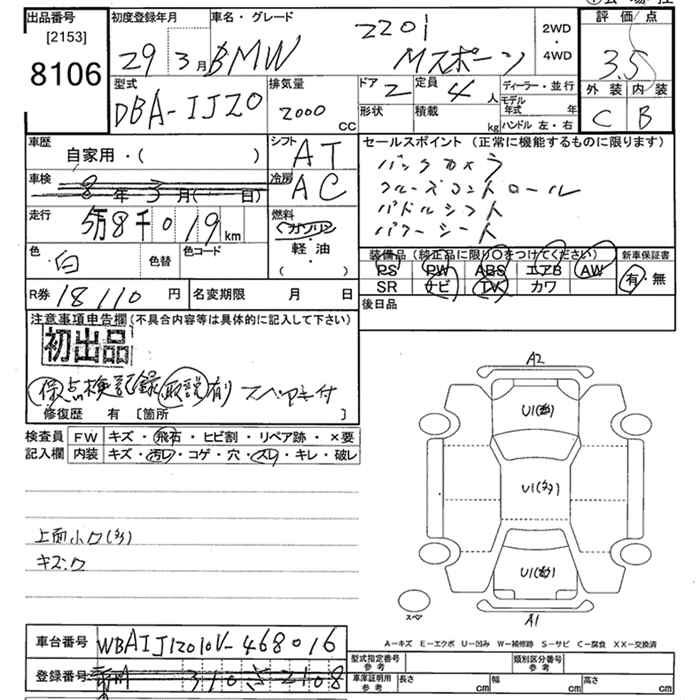 出品番号
[2153]
8106
初度登録年月
29 3月
車名・グレード
BMW 220i
Mスポーツ
2WD
・
4WD
評価点
3.5
外装 内装
C B
型式
DBA-1J20
排気量
2000 cc
ドア 2
形状
定員 4人
積載 kg
ディーラー・並行
モデル年式 年
ハンドル 左・右
車歴
自家用・( )
シフト AT
車検
8年3月( 日)
冷房 AC
走行
5万8千019km
燃料
ガソリン
軽・油
( )
色 白 色替
色コード
R券 18110円
名変期限 月 日
セールスポイント (正常に機能するものに限ります)
バックカメラ
クルーズコントロール
パドルシフト
パワーシート
装備品 (純正品に限り○をつけてください)
PS PW ABS エアB AW
SR ナビ TV カワ
新車保証書
有・無
後日品
注意事項申告欄 (不具合内容等は具体的に記入して下さい)
初出品
保 点検記録 取説有り スペアキー付
修復歴 有 [箇所 ]
検査員記入欄
FW キズ・飛石・ヒビ割・リペア跡・×要
内装 キズ・汚レ・コゲ・穴・スレ・キレ・破レ
上面小ワ(多)
キズ・ワ
A2
U1(多)
U1(多)
U1(多)
A1
スペア
A−キズ E−エクボ U−凹み W−補修跡 S−サビ C−腐食 XX−交換済
車台番号 WBA1J12010V-468016
登録番号 310 2108
型式指定番号
参考
類別区分番号
参考
車庫証明用
参考
長さ cm 幅 cm 高さ cm